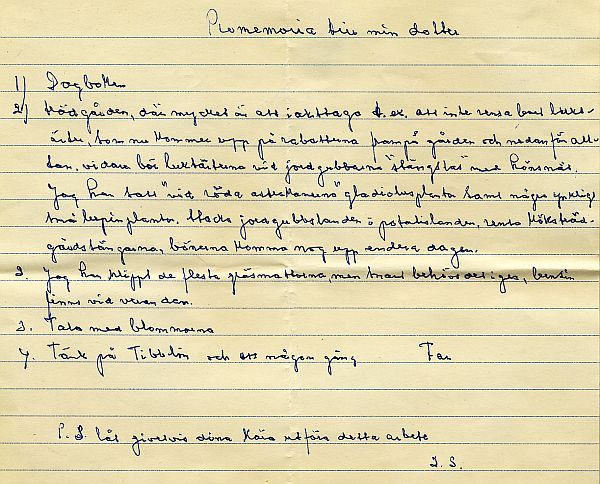 Promemoria för min dotter
1) Dagboken
2) trädgården, där mycket är att iakttaga t.ex. att inte rensa bort lukt-
ärter, som nu kommer upp på rabatterna frampå gården och nedanför alt-
an. vidare bör luktärterna vid jordgubbarna "stängslas" med hönsnät.
Jag har satt vid "röda astrakanerna" gladiolusplantor samt några ynkliga
små lupinplantor. Hacka jordgubbslanden o potatislanden, rensa köksträd-
gårdstängarna, bönorna komma nog upp endera dagen.
2. Jag har klippt de flesta gräsmattorna, men snart behövs det igen, bensin
finns vid verandan.
3. Tala med blommorna
4. Tänk på Tibblin och oss någon gång Far
P.S. låt givetvis dina kära utföra detta arbete
D.S.